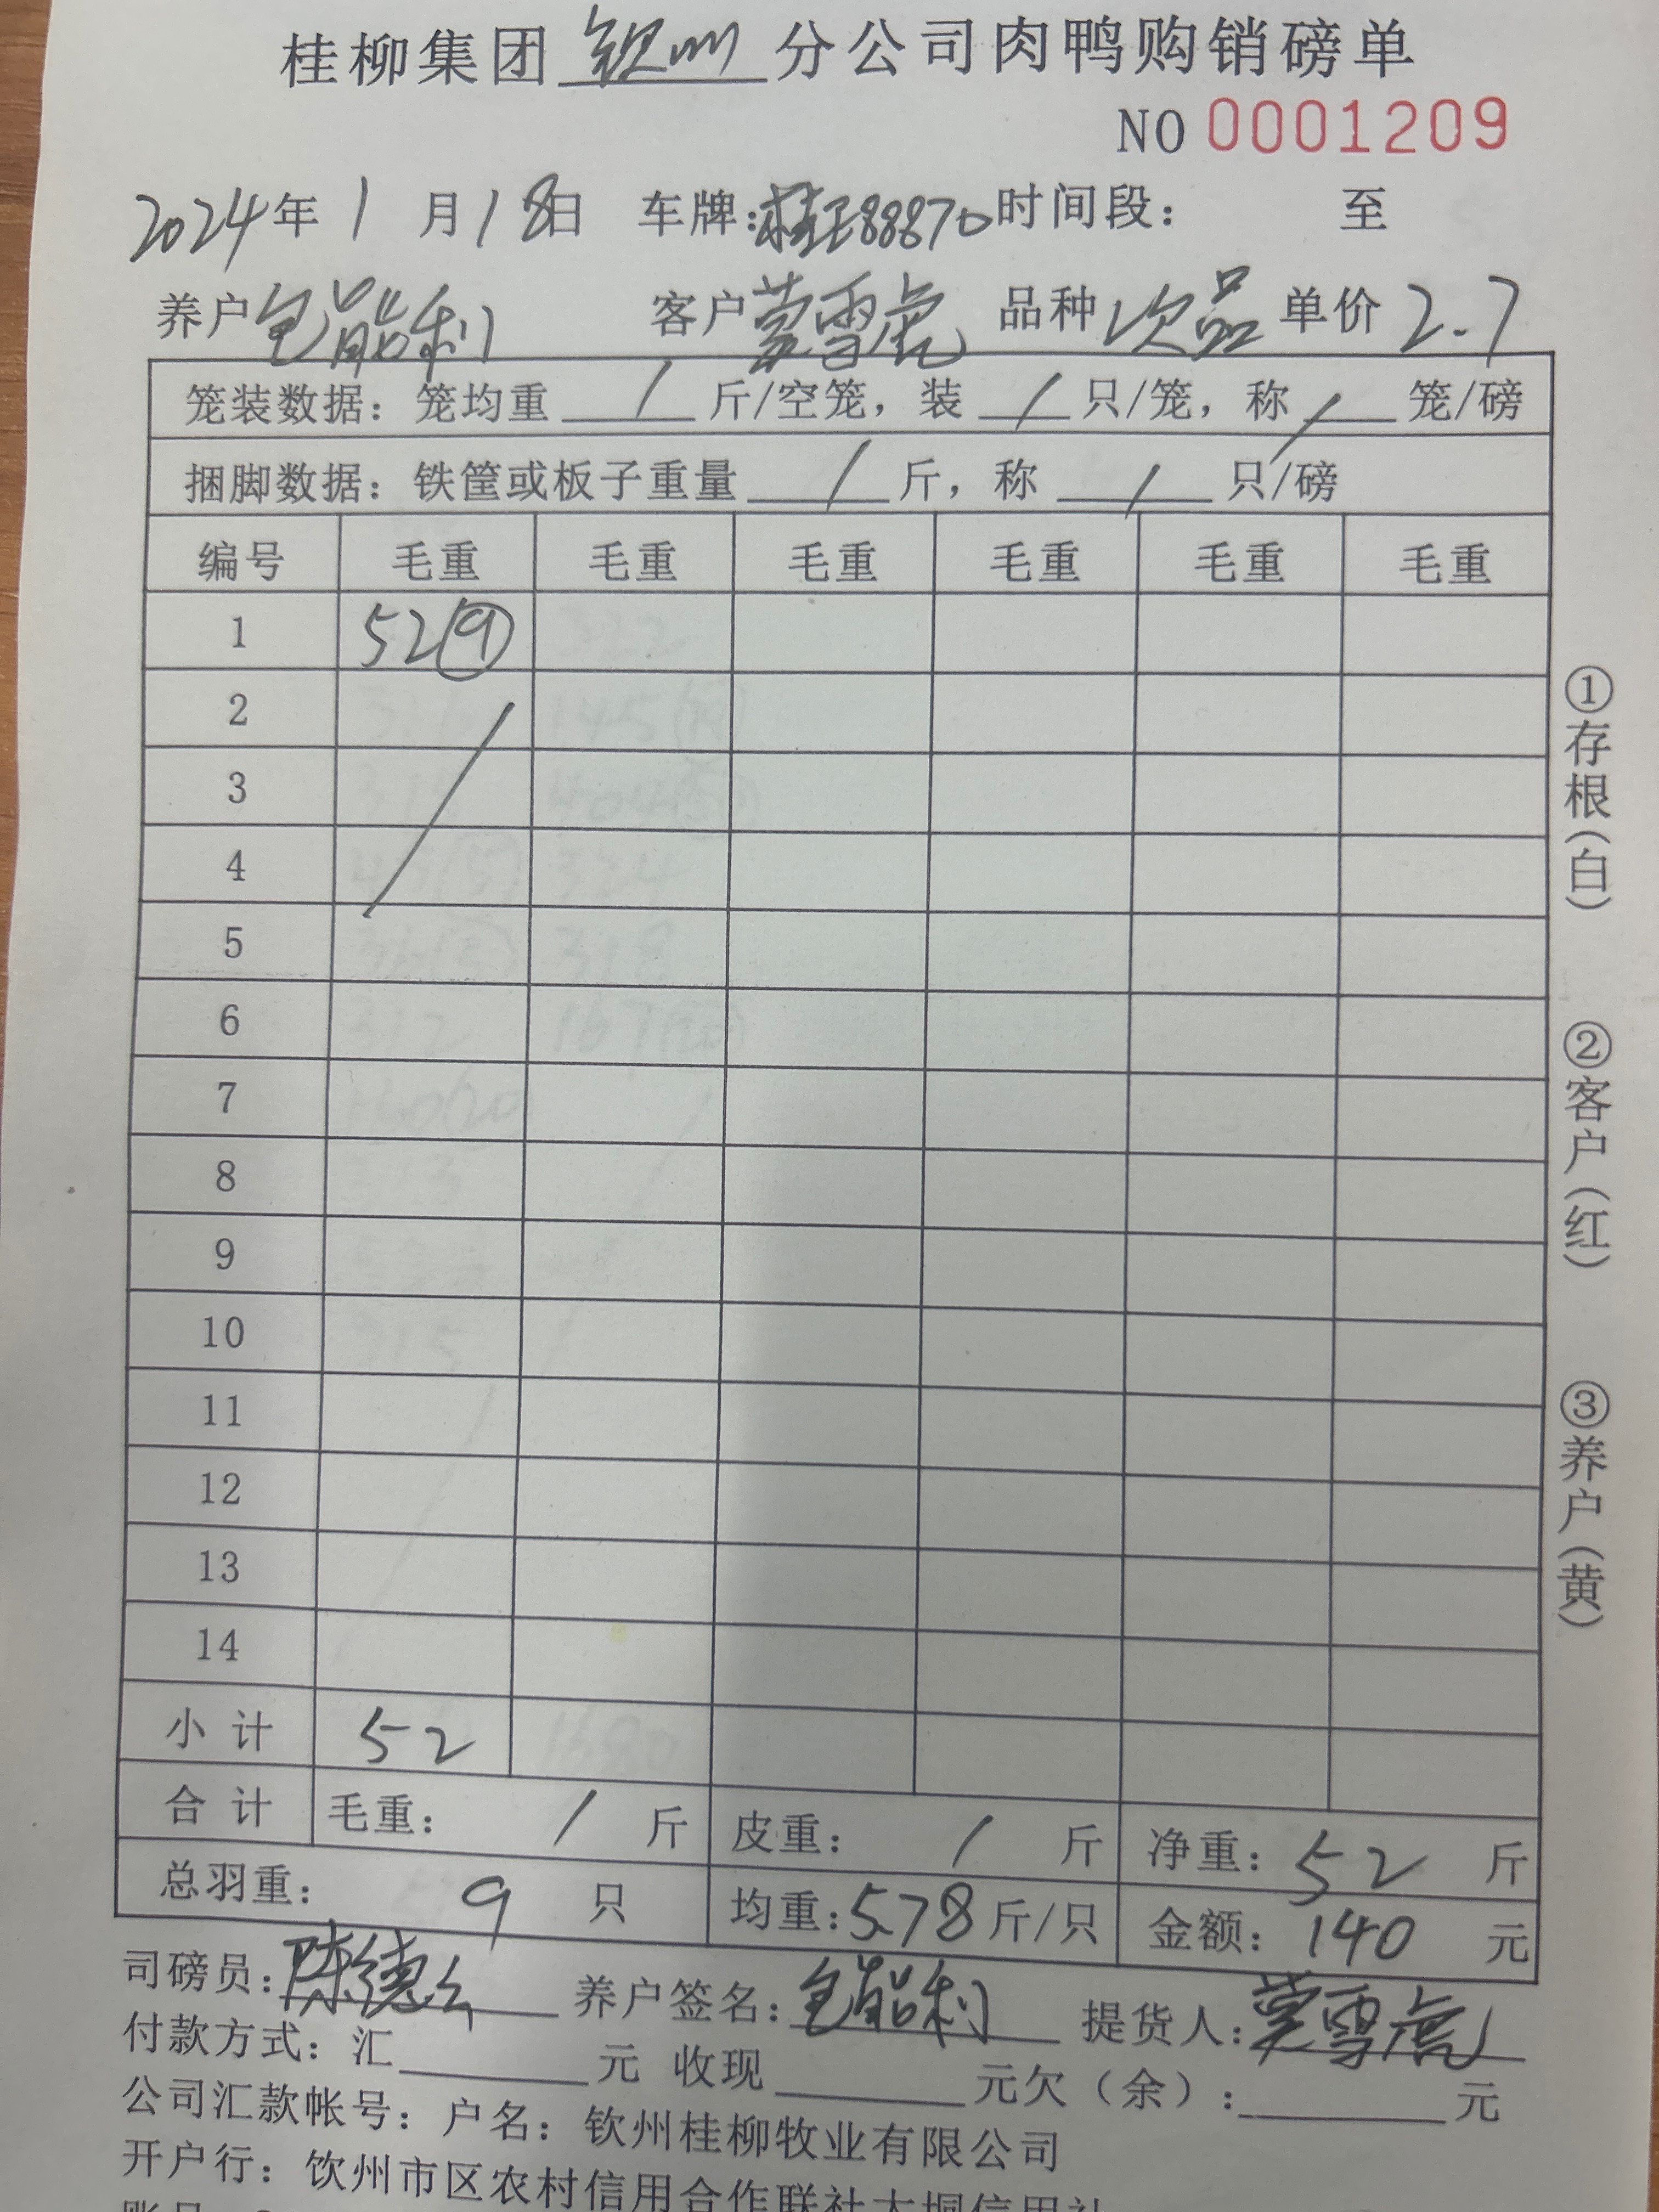 桂柳集团 钦州 分公司肉鸭购销磅单
NO 0001209
2024年 1 月 18日 车牌:桂E88870 时间段: 至
养户 包能利 客户 蒙雪虎 品种 次品 单价 2.7
笼装数据: 笼均重 / 斤/空笼, 装 / 只/笼, 称 / 笼/磅
捆脚数据: 铁筐或板子重量 / 斤, 称 / 只/磅
编号 毛重 毛重 毛重 毛重 毛重 毛重
1 52⑨
2
3
4
5
6
7
8
9
10
11
12
13
14
小 计 52
合 计 毛重: / 斤 皮重: / 斤 净重: 52 斤
总羽重: 9 只 均重: 5.78 斤/只 金额: 140 元
司磅员: 陈德 养户签名: 包能利 提货人: 蒙雪虎
付款方式: 汇 元 收现 元欠(余): 元
公司汇款帐号: 户名: 钦州桂柳牧业有限公司
开户行: 钦州市区农村信用合作联社大垌信用社
①存根(白)
②客户(红)
③养户(黄)